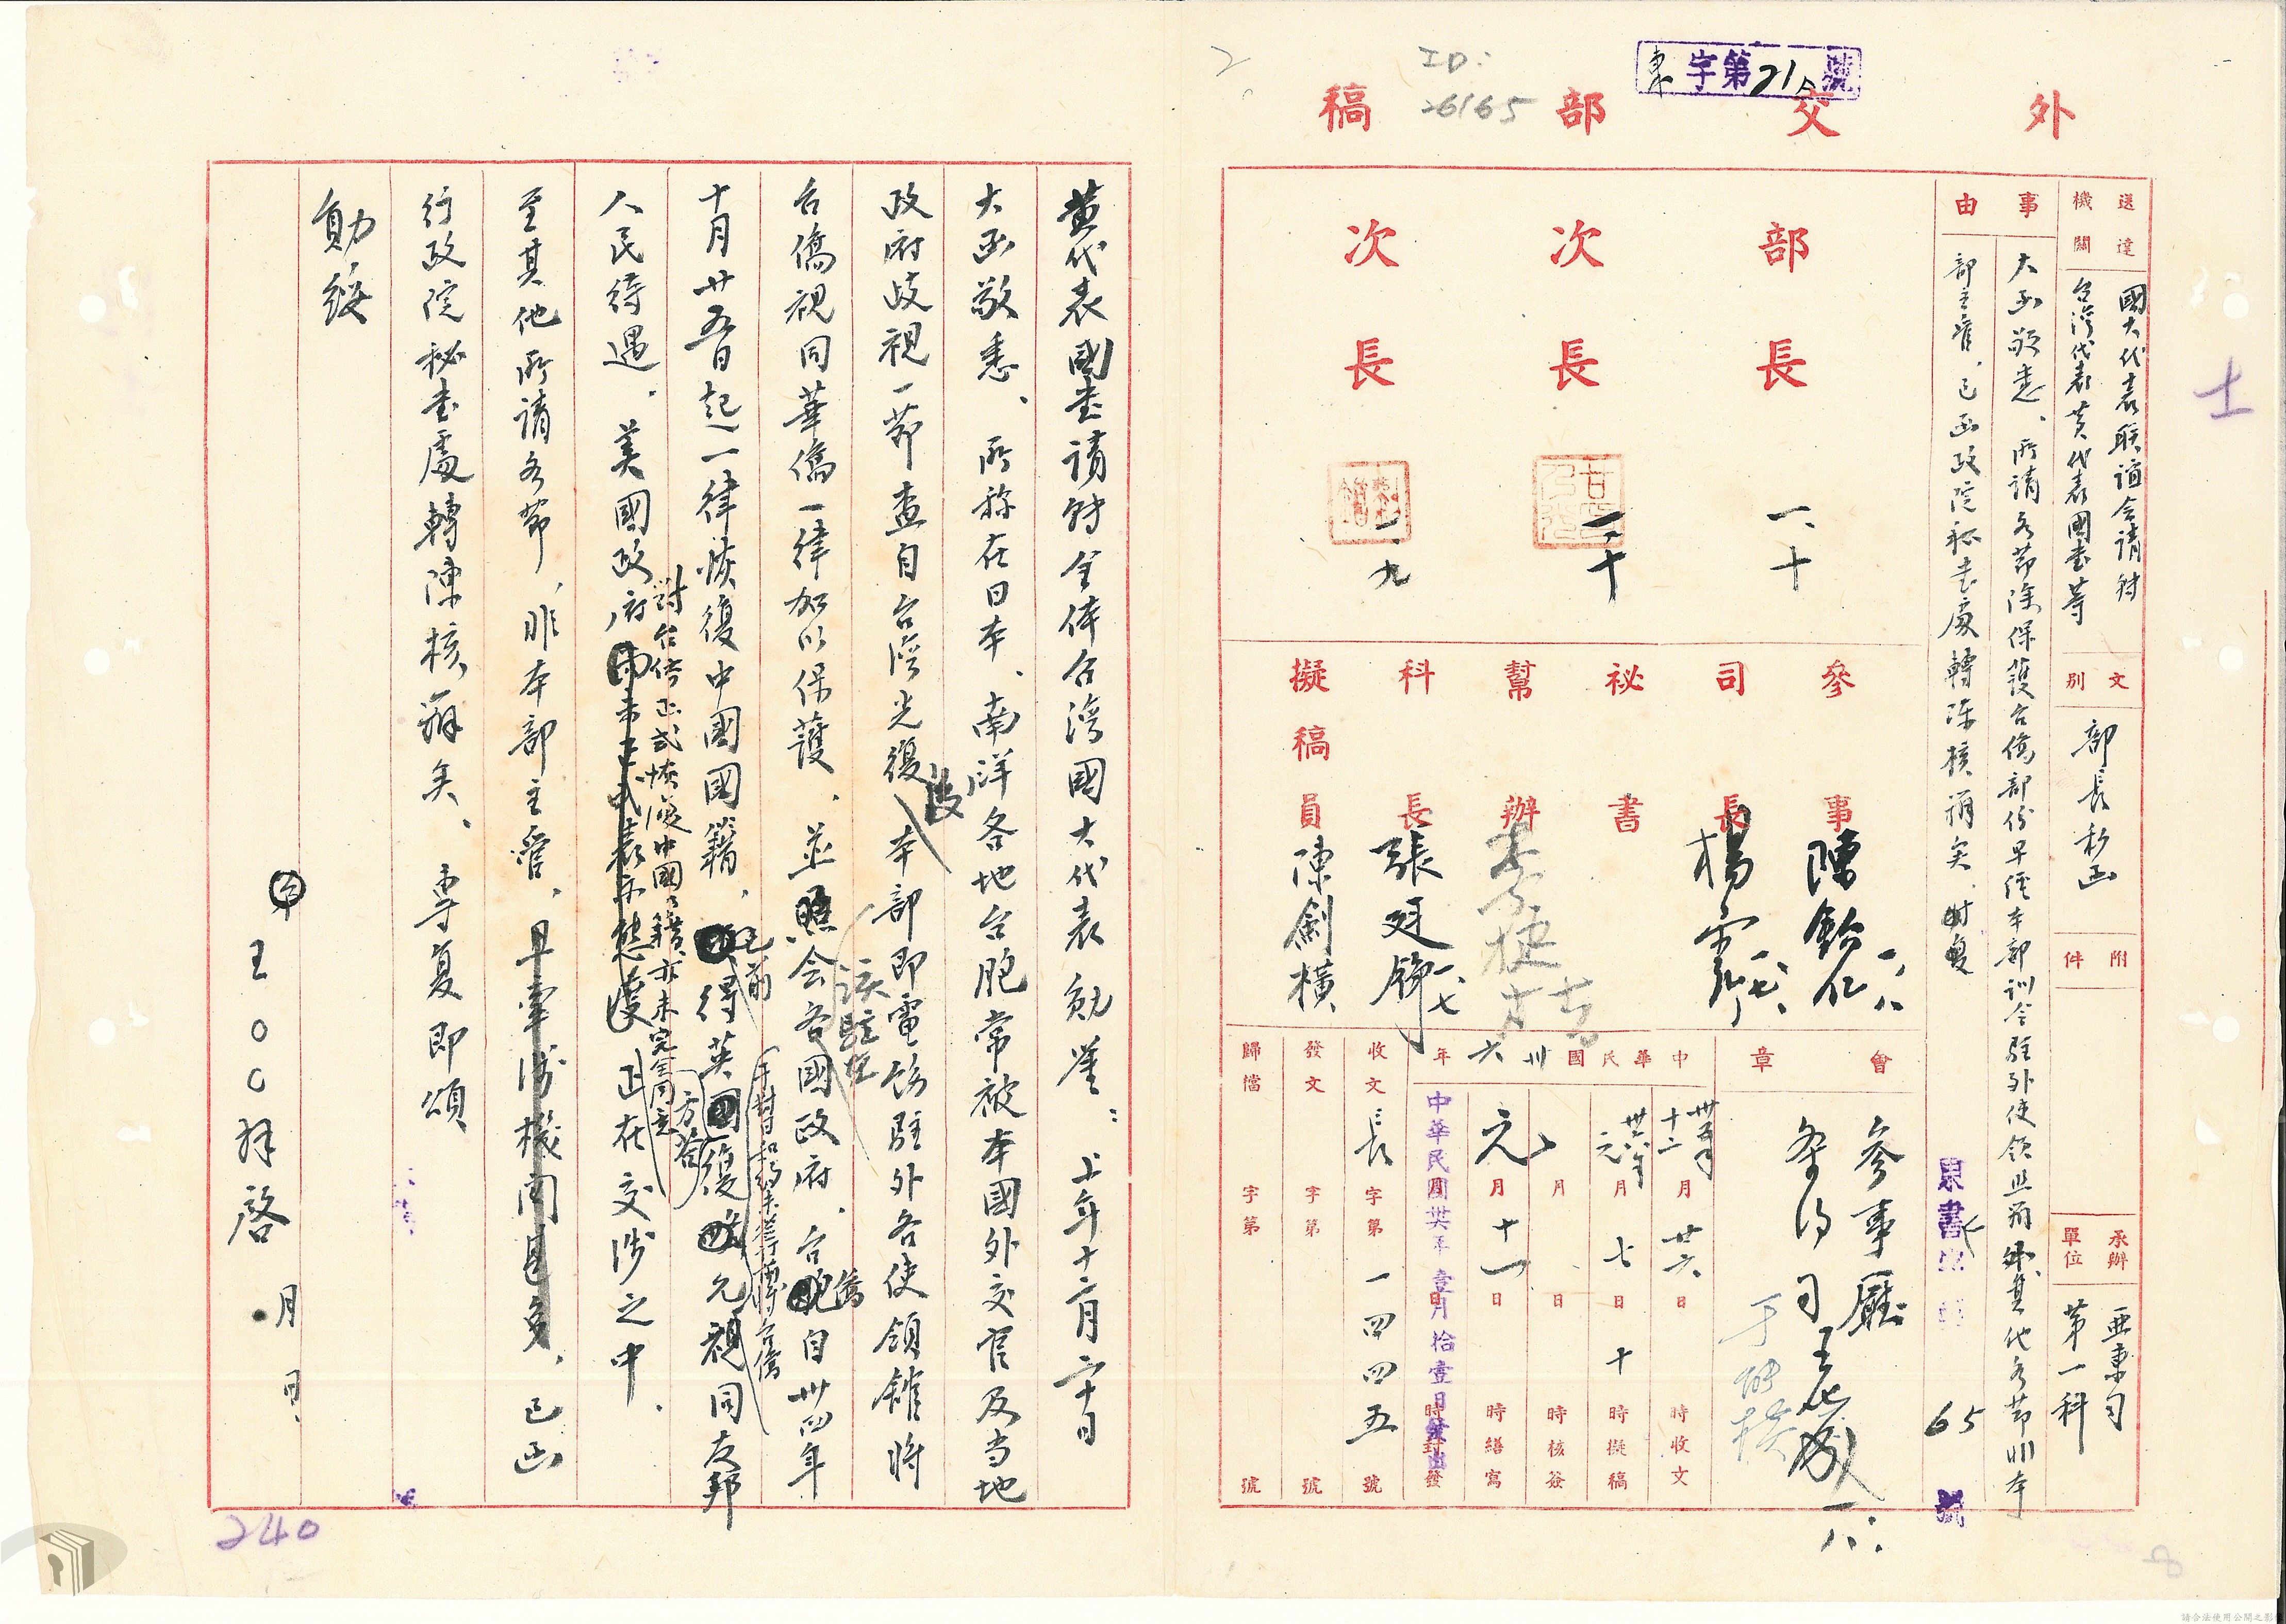 東字第21A號
外交部稿
ID:
26165
2
士
送達機關
國大代表联誼会請轉
台灣代表黃代表國書等
文別
部長私函
附件
承辦單位
亜東司
第一科
事由
大函敬悉、所請各節除保護台僑部份早經本部訓令駐外使領照前外其他各節非本
部主管、已函政院秘書處轉陳核辦矣、耑复
東書字
65
號
部長
一、十
次長
一、十
次長
一、九
參事
陳
一、八
司長
楊
一、七、
祕書
幫辦
科長
張廷錚
一、七
擬稿員
陳劍橫
會章
參事廳
条約司
一、八、
中華民國卅六年
卅五年十二月廿六日 時收文
卅六年元月七日十時擬稿
月 日 時核簽
元月十一日 時繕寫
中華民國卅六年壹月拾壹日發出
時封發
收文長字第一四四五號
發文 字第 號
歸檔 字第 號
黃代表國書請轉全体台灣國大代表勛鑒：上年十二月二十日
大函敬悉、所称在日本、南洋各地台胞常被本國外交官及当地
政府歧視一節查自台湾光復後本部即電飭駐外各使領館將
台僑視同華僑一律加以保護、並照会各該駐在國政府、台僑自卅四年
十月廿五日起一律恢復中國國籍，
已前得英方答復允視同友邦
于對日和約未簽訂前將台僑
人民待遇、美國政府對台僑正式恢復中國國籍亦未完全同意正在交涉之中、
至其他所請各節，非本部主管、早牽涉機關甚多、已函
行政院秘書處轉陳核辦矣、專复即頌
勛綏
王○○拜啓 月 日、
240
8
請合法使用公開之影像